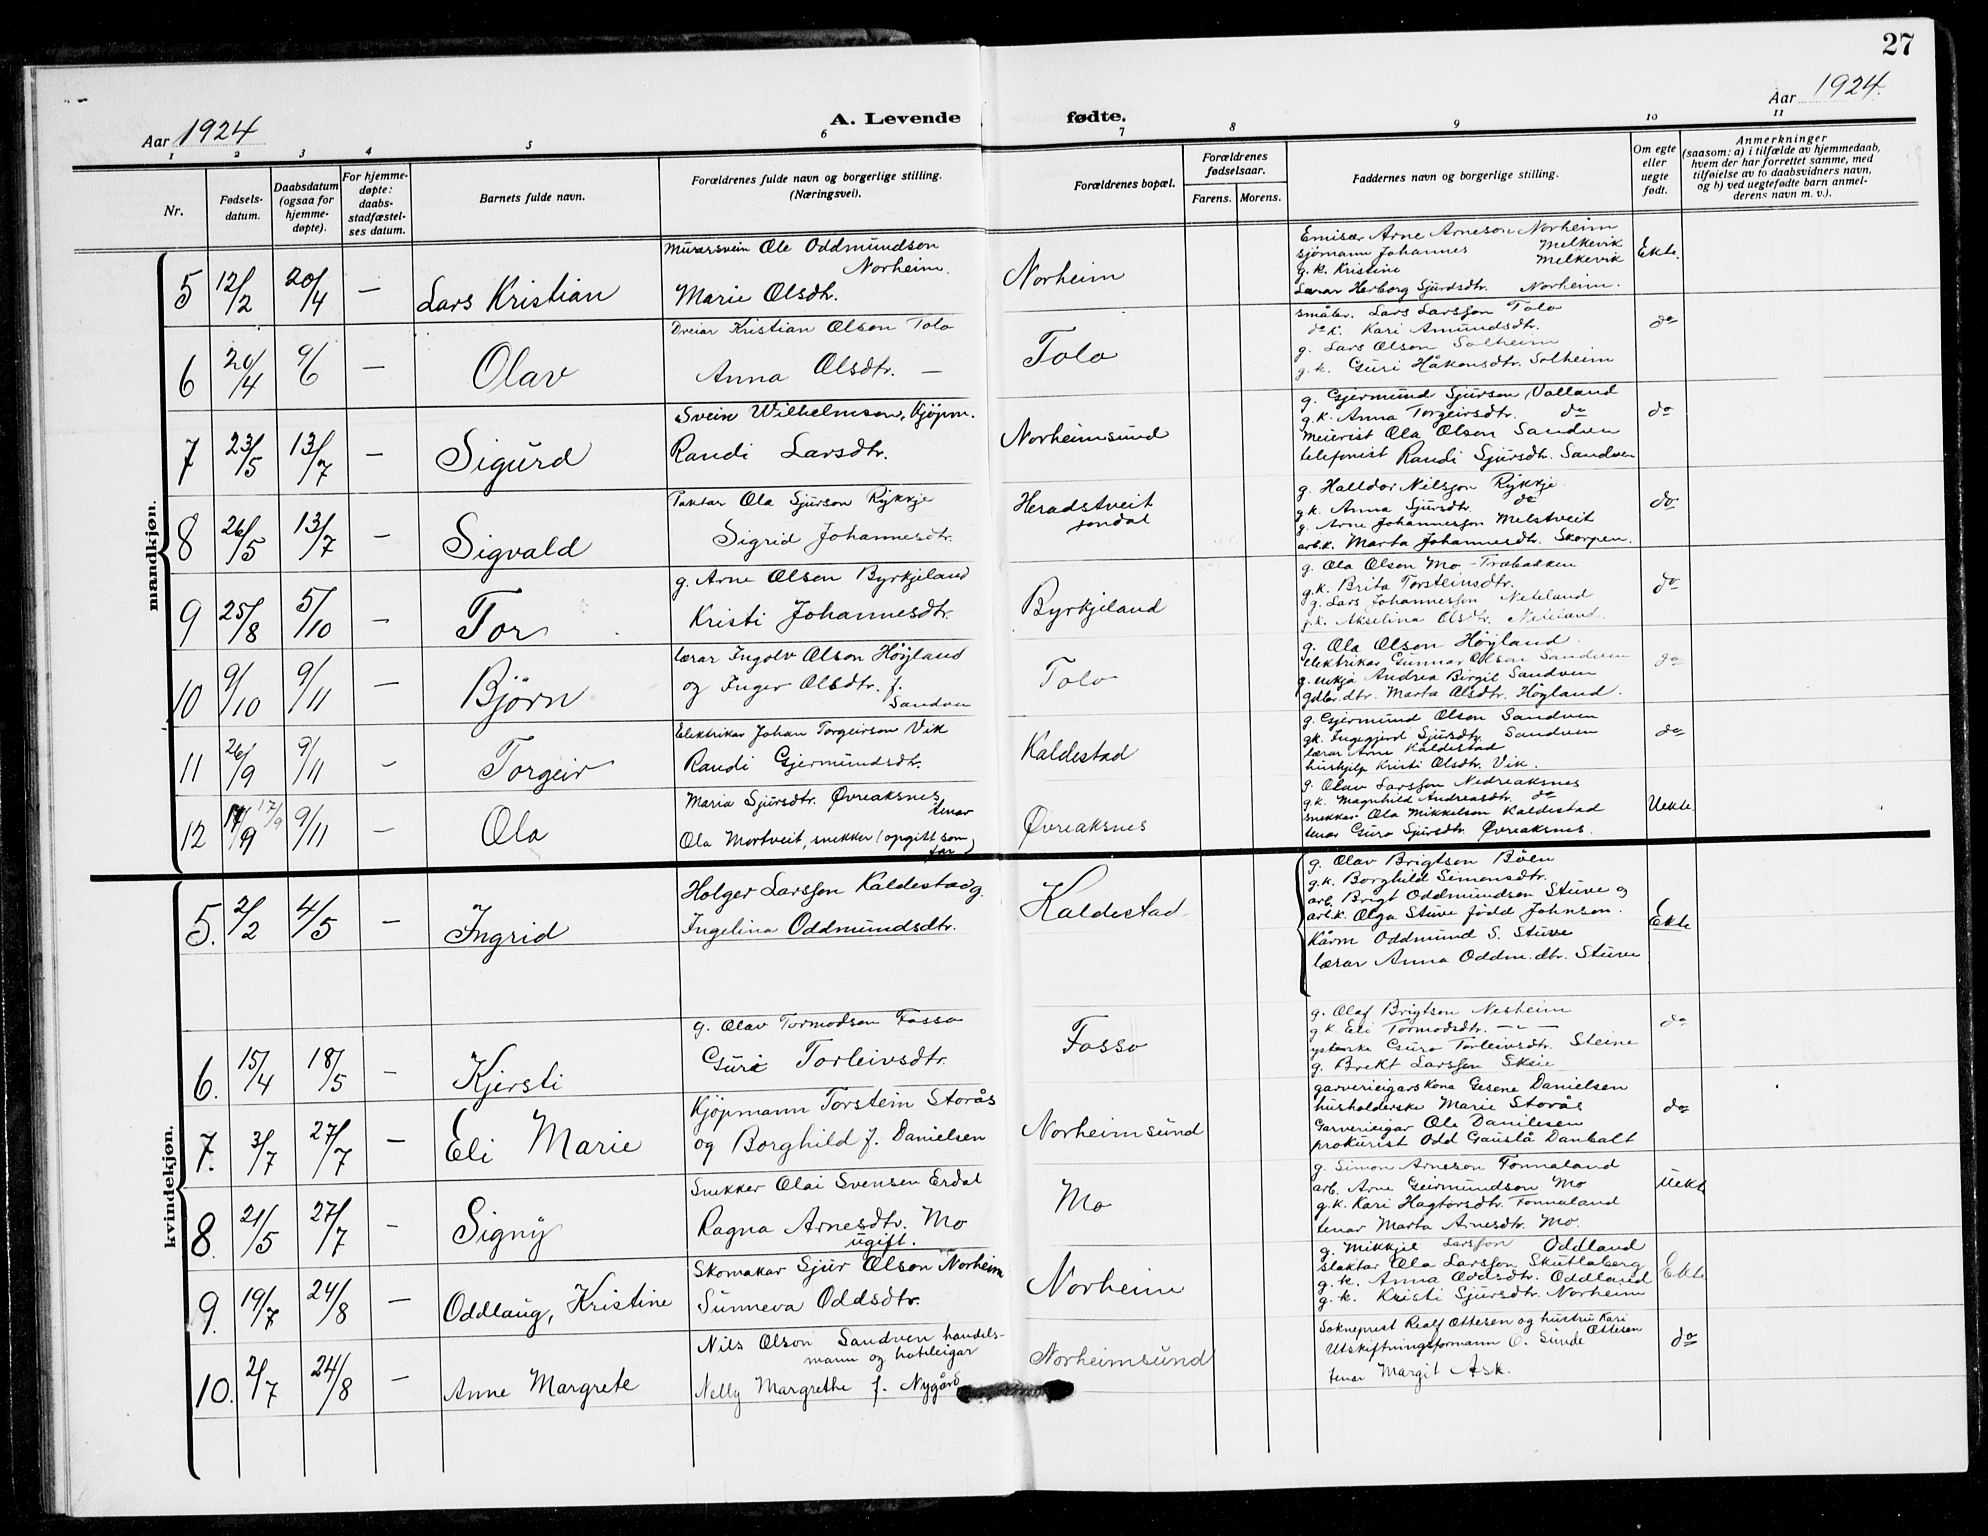 27
Aar 1924
A. Levende fødte.
Aar 1924.
1 2 3 4 5 6 7 8 9 10 11
Nr.
Fødsels-
datum.
Daabsdatum
(ogsaa for
hjemme-
døpte).
For hjemme-
døpte:
daabs-
stadfæstel-
ses datum.
Barnets fulde navn.
Forældrenes fulde navn og borgerlige stilling.
(Næringsvei).
Forældrenes bopæl.
Forældrenes
fødselsaar.
Farens. Morens.
Faddernes navn og borgerlige stilling.
Om egte
eller
uegte
født.
Anmerkninger
(saasom: a) i tilfælde av hjemmedaab,
hvem der har forrettet samme, med
tilføielse av to daabsvidners navn,
og b) ved uegtefødte barn anmel-
derens navn m. v.).
mandkjøn.
5 12/2 20/4 — Lars Kristian
Murarsvein Ole Oddmundson
Norheim.
Marie Olsdtr.
Norheim
Emisær Arne Arneson Norheim
sjömann Johannes Melkevik
g. k. Kristine Melkevik
Lærar Herborg Sjurdsdtr. Norheim.
Ekte.
6 20/4 9/6 — Olav
Dreiar Kristian Olson Tolo
Anna Olsdtr. —
Tolo
småbr. Lars Larsson Tolo
do k. Kari Amundsdtr.
g. Lars Olson Solheim
g. k. Guri Håkonsdtr. Solheim
do
7 23/5 13/7 — Sigurd
Svein Wilhelmson, Kjöpm.
Randi Larsdtr.
Norheimsund
g. Gjermund Sjurson Valland
g.k. Anna Torgeirsdtr. do
Meierist Ola Olson Sandven
telefonist Randi Sjursdtr. Sandven
do
8 26/5 13/7 — Sigvald
Ola Sjurson Rykkje
Sigrid Johannesdtr.
Heradstveit
Jondal
g. Halldor Nilsson Rykkje
g.k. Anna Sjursdtr. do
g. Arne Johannesson Melstveit
arb.k. Marta Johannesdtr. Skorpen.
do
9 25/8 5/10 — Tor
g. Arne Olson Byrkjeland
Kristi Johannesdtr.
Byrkjeland
g. Ola Olson Mo - Træbakken
g.k. Brita Torsteinsdtr.
g. Lars Johannesson Neteland
g.k. Akselina Olsdtr.
do
10 9/10 9/11 — Björn
lærar Ingolv Olson Höyland
og Inger Olsdtr. f.
Sandven
Tolo
g. Ola Olson Höyland.
elektrikar Gunnar Olson Sandven
g. enkja Andrea Birgit Sandven
gdbr.dtr. Marta Olsdtr. Höyland.
do
11 26/9 9/11 — Torgeir
Elektrikar Johan Torgeirson Vik
Randi Gjermundsdtr.
Kaldestad
g. Gjermund Olson Sandven
gk. Ingegjerd Sjursdtr. Sandven
lærar Arne Kaldestad
hushjelp Kristi Olsdtr. Vik.
do
12 17/9 17/9 9/11 — Ola
Maria Sjursdtr. Øvreaksnes
tenar
Ola Mortveit, snekker (opgitt som
far)
Øvreaksnes
g. Olav Larsson Nedreaksnes
g.k. Magnhild Andreasdtr. do
snekkar Ola Mikkelson Kaldestad
tenar Guro Sjursdtr. Øvreaksnes.
Uekte.
kvindekjøn.
5. 2/2 4/5 — Ingrid
Holger Larsson Kaldestad g.
Ingelina Oddmundsdtr.
Kaldestad
g. Olav Brigtson Böen
g.k. Borghild Simonsdtr.
arb. Brigt Oddmundson Stuve og
arb.k. Olga Stuve född Johnson.
Oddmund S. Stuve
lærar Anna Oddm.dtr. Stuve
Ekte
6. 15/4 18/5 — Kjersti
g. Olav Tormodson Fosso
Guri Torleivsdtr.
Fosso
g. Olaf Brigtson Nesheim
g.k. Eli Tormodsdtr. — " —
Guro Torleivsdtr. Steine
g. Brekt Larsson Skeie
do
7. 3/7 27/7 — Eli Marie
Kjöpmann Torstein Storås
og Borghild f. Danielsen
Norheimsund
garverieigarskona Gesene Danielsen
husholderske Marie Storås
Garverieigar Ole Danielsen
prokurist Odd Gauslå Danbolt
do
8. 21/5 27/7 — Signy
Snekker Olai Svensen Erdal
Ragna Arnesdtr. Mo
ugift.
Mo
g. Simon Arneson Tonnaland
arb. Arne Geirmundson Mo
g.k. Kari Hagtorsdtr. Tonnaland
tenar Marta Arnesdtr. Mo.
Uekte
9. 19/7 24/8 — Oddlaug, Kristine
Skomakar Sjur Olson Norheim
Sunneva Oddsdtr.
Norheim
g. Mikkjel Larsson Oddland
slaktar Ola Larsson Skutlaberg
g.k. Anna Oddsdtr. Oddland
g.k. Kristi Sjursdtr. Norheim
Ekte
10. 2/7 24/8 — Anne Margrete
Nils Olson Sandven handels-
mann og hoteleigar
Nelly Margrethe f. Nygård
Norheimsund
Sokneprest Realf Ottesen og hustru Kari
Ottesen
Utskiftningsformann O. Sunde
tenar Margit Ask.
do